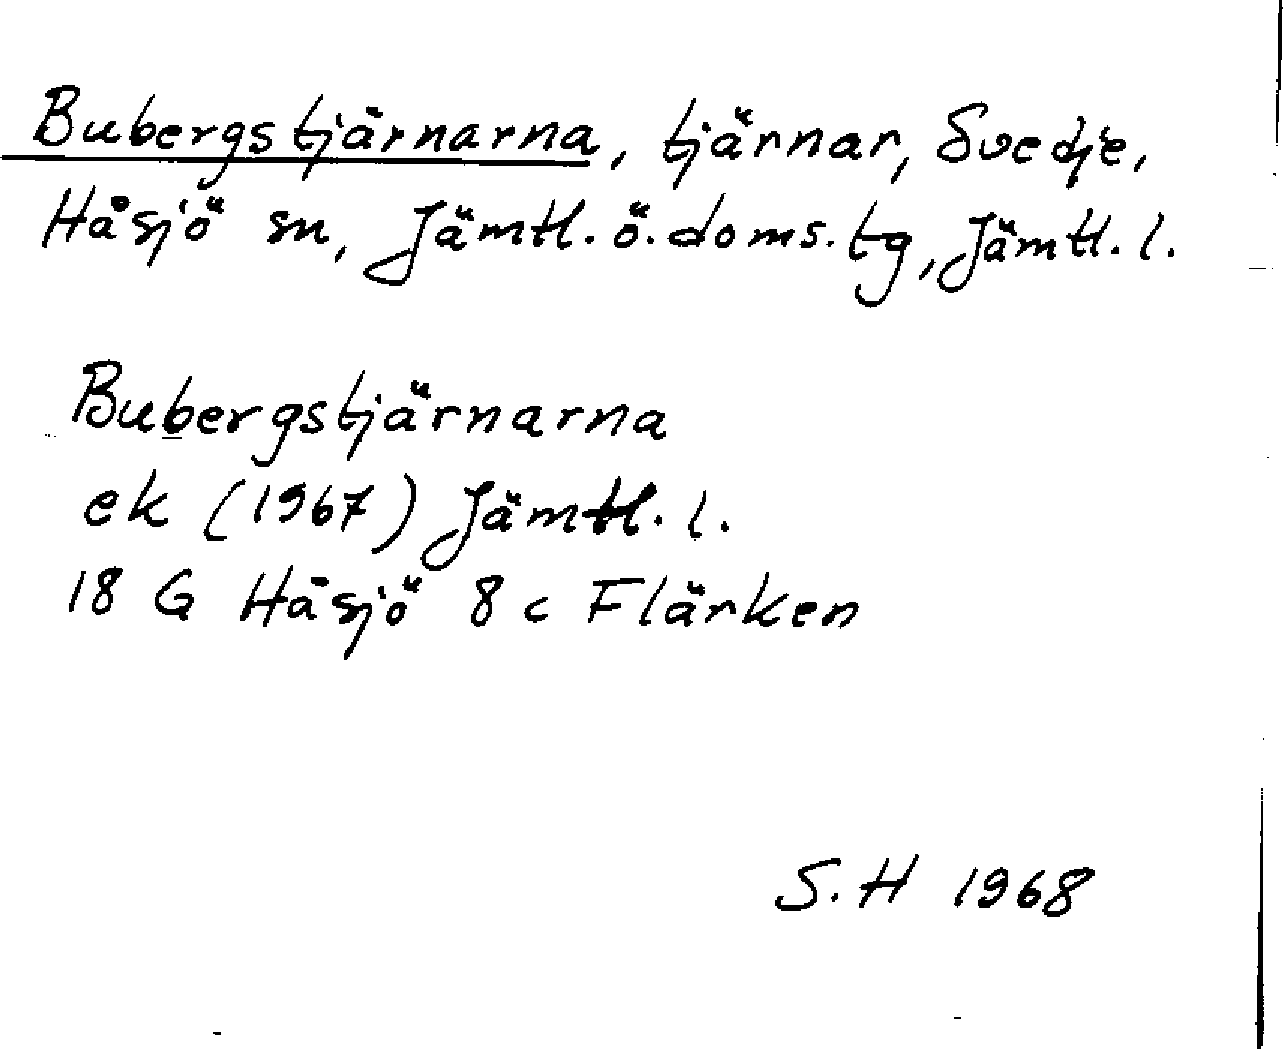 Bubergstjärnarna, tjärnar, Svedje,
Håsjö sn, Jämtl. ö. doms. tg, Jämtl. l.
Bubergstjärnarna
ek (1967) Jämtl. l.
18 G Håsjö 8 c Flärken
S. H 1968